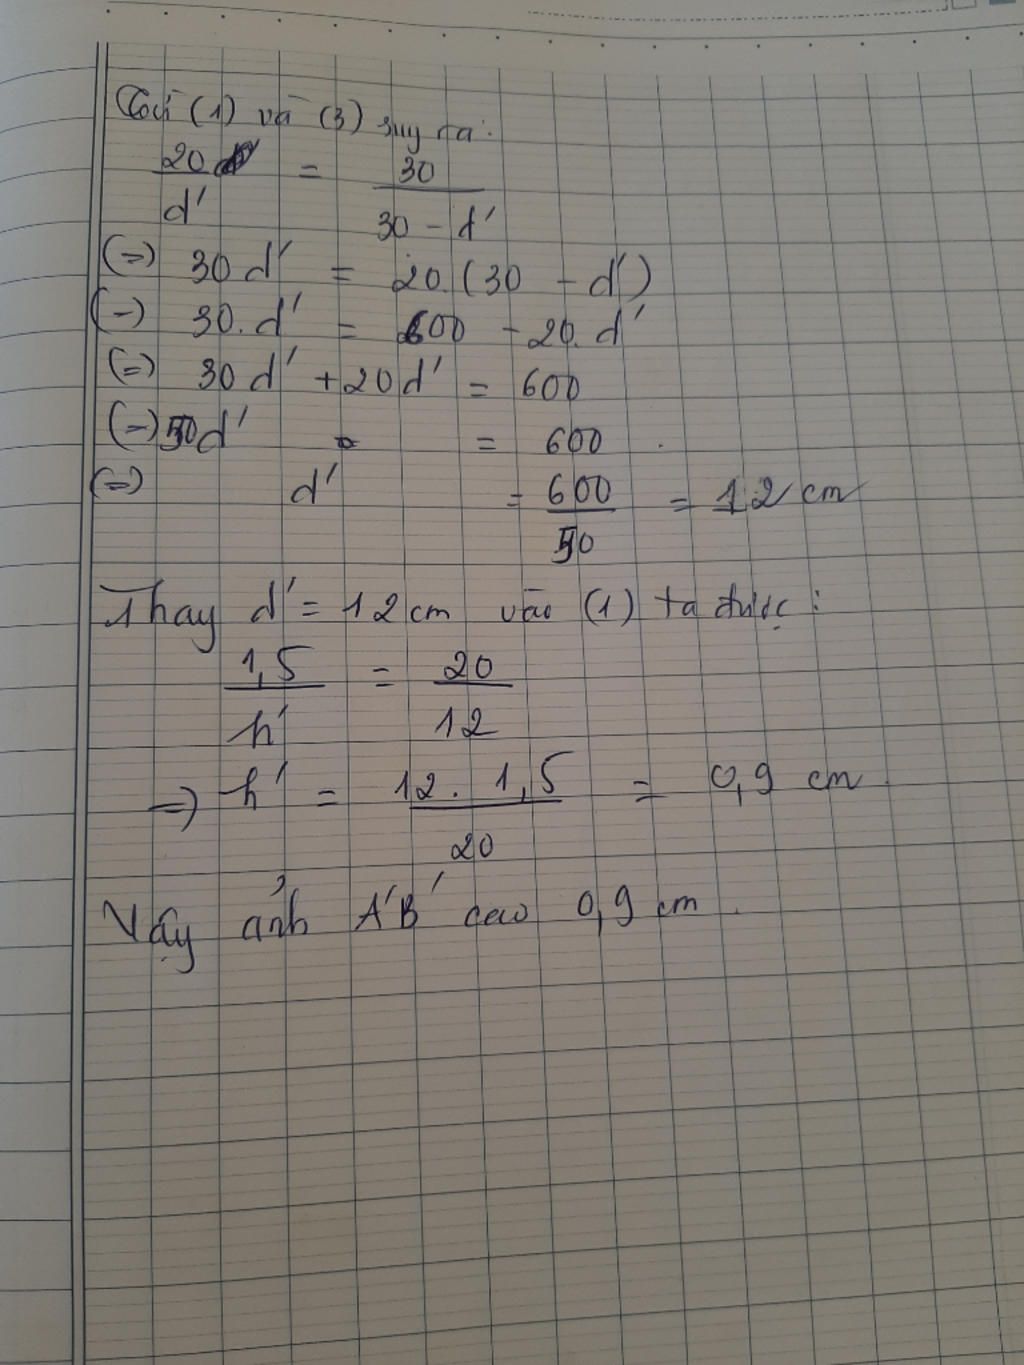 Từ (1) và (3) suy ra:
20 / d' = 30 / 30 - d'
(=) 30 d' = 20.(30 - d')
(=) 30.d' = 600 - 20.d'
(=) 30 d' + 20 d' = 600
(=) 50 d' = 600
(=) d' = 600 / 50 = 12 cm
Thay d' = 12 cm vào (1) ta được:
1,5 / h' = 20 / 12
=> h' = 12. 1,5 / 20 = 0,9 cm
Vậy ảnh A'B' cao 0,9 cm.